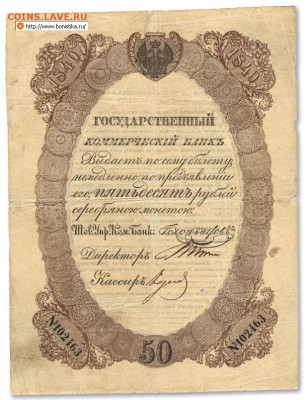 COINS.LAVE.RU
http://www.bonistika.ru/
1840
1840
ГОСУДАРСТВЕННЫЙ
КОММЕРЧЕСКІЙ БАНКЪ
Выдаетъ по сему билету
немедленно по предъявленіи
его, пятьдесятъ рублей
серебряною монетою.
Тов. Упр. Ком. Банк:
Директоръ
Кассиръ
50
№102463
№102463